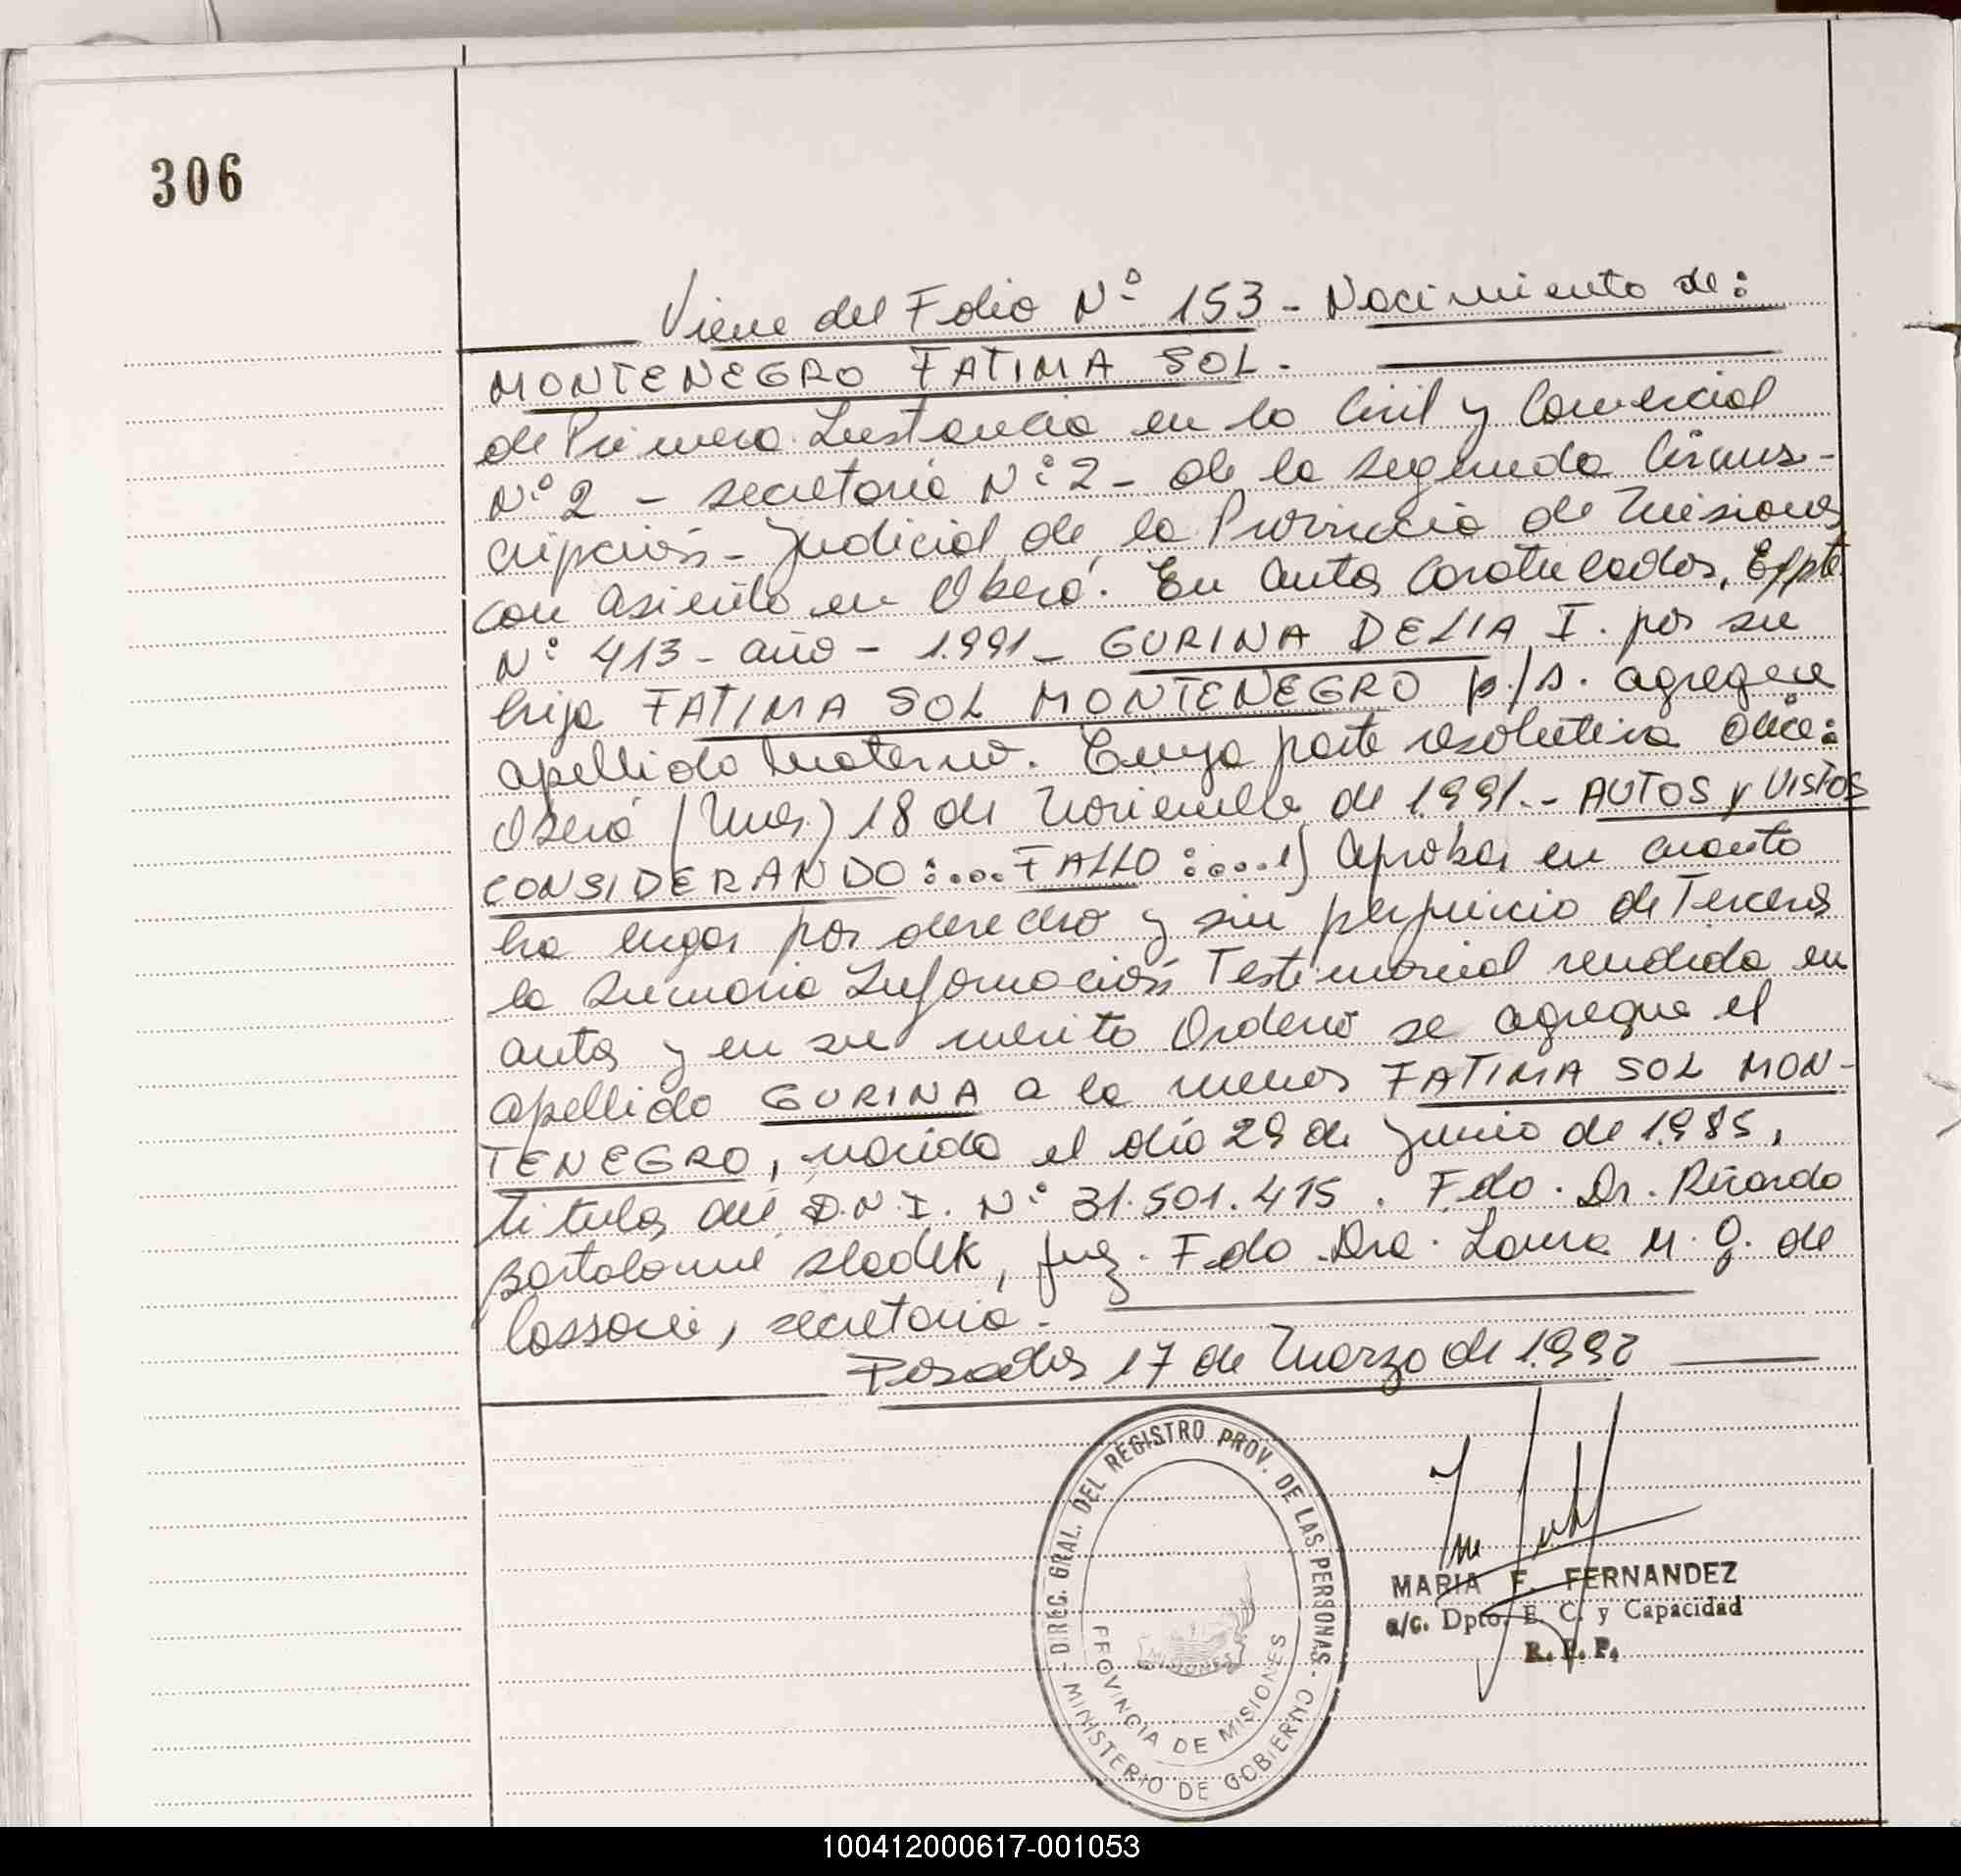 306
Viene del Folio Nº 153 - Nacimiento de:
MONTENEGRO FATIMA SOL.
de Primera Instancia en lo Civil y Comercial
Nº 2 - secretaria Nº 2 - de la segunda Circuns-
cripción - Judicial de la Provincia de Misiones
con asiento en Oberá. En autos caratulados, Expte
Nº 413 - año - 1.991 - GURINA DELIA I. por su
hija FATIMA SOL MONTENEGRO p/s. agregue
apellido materno. Cuya parte resolutiva dice:
Oberá (Mnes.) 18 de Noviembre de 1.991.- AUTOS y VISTOS
CONSIDERANDO:....FALLO:....1) Aprobar en cuanto
ha lugar por derecho y sin perjuicio de Terceros
la sumaria Información Testimonial rendida en
autos y en su merito Ordeno se agregue el
apellido GURINA a la menor FATIMA SOL MON-
TENEGRO, nacida el día 29 de Junio de 1.985,
titular del D.N.I. Nº 31.501.415. Fdo. Dr. Ricardo
Bartolome Sladek, Juez. Fdo. Dra. Laura M. Q. de
Cassoni, secretaria.
Posadas 17 de Marzo de 1.992
DIREC. GRAL. DEL REGISTRO PROV. DE LAS PERSONAS -
MINISTERIO DE GOBIERNO
PROVINCIA DE MISIONES
MISIONES
MARIA F. FERNANDEZ
a/c. Dpto. E. C. y Capacidad
R. P. P.
100412000617-001053